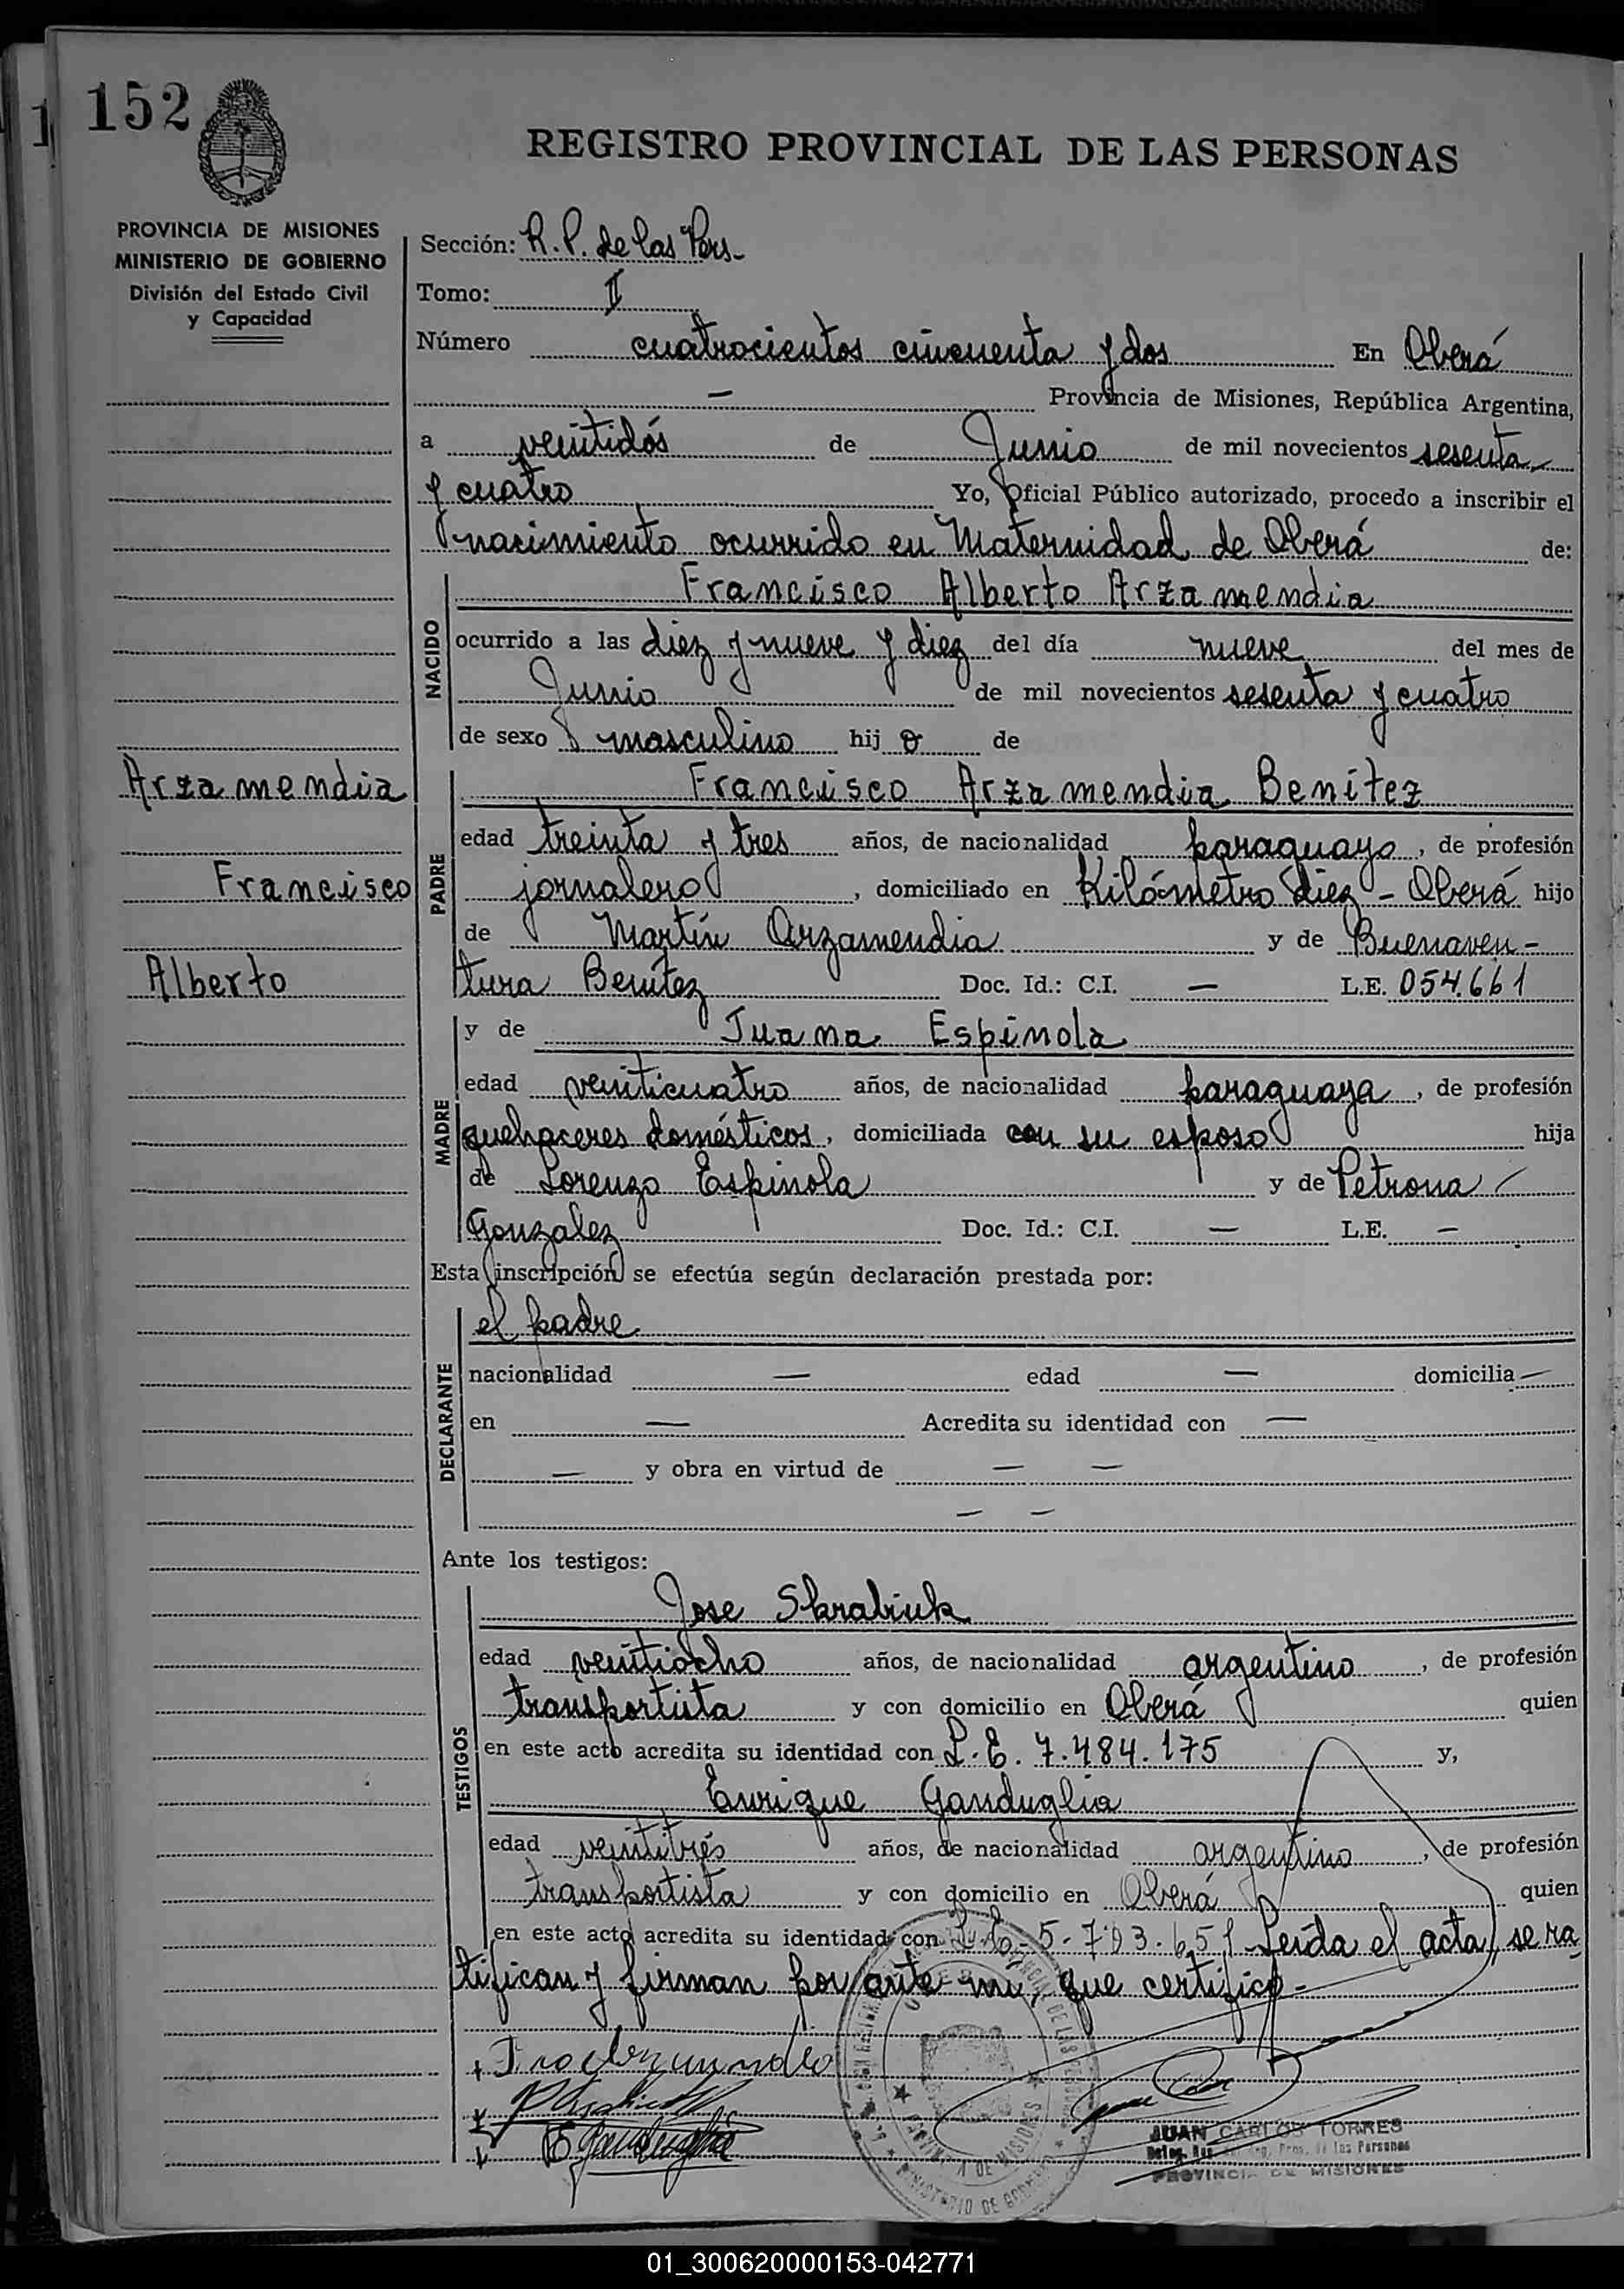 152
REGISTRO PROVINCIAL DE LAS PERSONAS
PROVINCIA DE MISIONES
MINISTERIO DE GOBIERNO
División del Estado Civil
y Capacidad
Sección: R. P. de las Pers-
Tomo: II
Número cuatrocientos cincuenta y dos En Oberá
— Provincia de Misiones, República Argentina,
a veintidós de Junio de mil novecientos sesenta
y cuatro Yo, Oficial Público autorizado, procedo a inscribir el
nacimiento ocurrido en Maternidad de Oberá de:
NACIDO
Francisco Alberto Arzamendia
ocurrido a las diez y nueve y diez del día nueve del mes de
Junio de mil novecientos sesenta y cuatro
de sexo masculino hijo de
Arzamendia
Francisco
Alberto
PADRE
Francisco Arzamendia Benítez
edad treinta y tres años, de nacionalidad paraguayo, de profesión
jornalero, domiciliado en Kilómetro diez - Oberá hijo
de Martín Arzamendia y de Buenaven-
tura Benítez Doc. Id.: C.I. — L.E. 054.661
MADRE
y de Juana Espínola
edad veinticuatro años, de nacionalidad paraguaya, de profesión
quehaceres domésticos, domiciliada con su esposo hija
de Lorenzo Espínola y de Petrona
Gonzalez Doc. Id.: C.I. — L.E. —
Esta inscripción se efectúa según declaración prestada por:
DECLARANTE
el padre
nacionalidad — edad — domicilia —
en — Acredita su identidad con —
— y obra en virtud de — —
— —
Ante los testigos:
TESTIGOS
Jose Skrabiuk
edad veintiocho años, de nacionalidad argentino, de profesión
transportista y con domicilio en Oberá quien
en este acto acredita su identidad con L. E. 7.484.175 y,
Enrique Ganduglia
edad veintitrés años, de nacionalidad argentino, de profesión
transportista y con domicilio en Oberá quien
en este acto acredita su identidad con Leída el acta, se ra
tifican y firman por ante mí, que certifico-
E. Ganduglia
PROVINCIA DE MISIONES
MINISTERIO DE GOBIERNO
JUAN CARLOS TORRES
de las Personas
PROVINCIA DE MISIONES
01_300620000153-042771